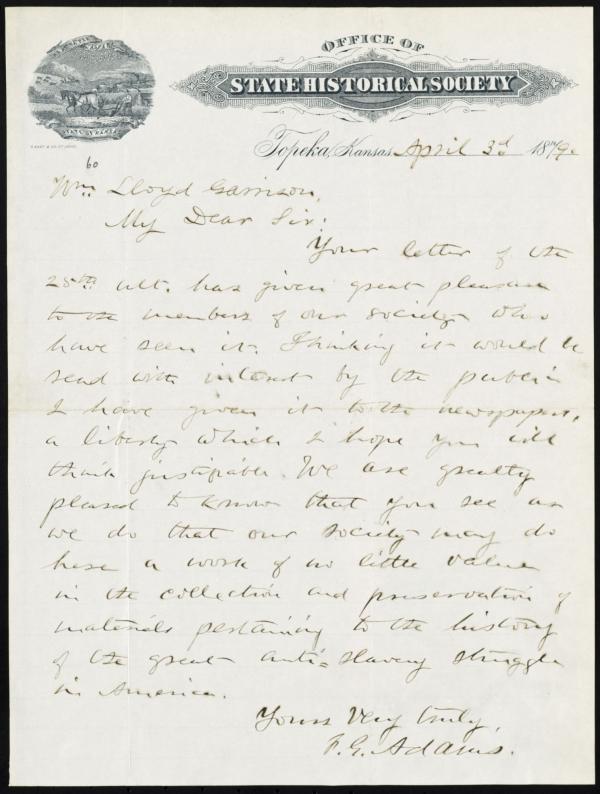 OFFICE OF
STATE HISTORICAL SOCIETY
Topeka, Kansas, April 3d 1879.
60
Wm. Lloyd Garrison,
My Dear Sir:
Your letter of the
25th ult. has given great pleasure
to the members of our society who
have seen it. Thinking it would be
read with interest by the public
I have given it to the newspapers,
a liberty which I hope you will
think justifiable. We are greatly
pleased to know that you see as
we do that our Society may do
here a work of no little value
in the collection and preservation of
materials pertaining to the history
of the great anti=slavery struggle
in America.
Yours Very truly,
F. G. Adams.